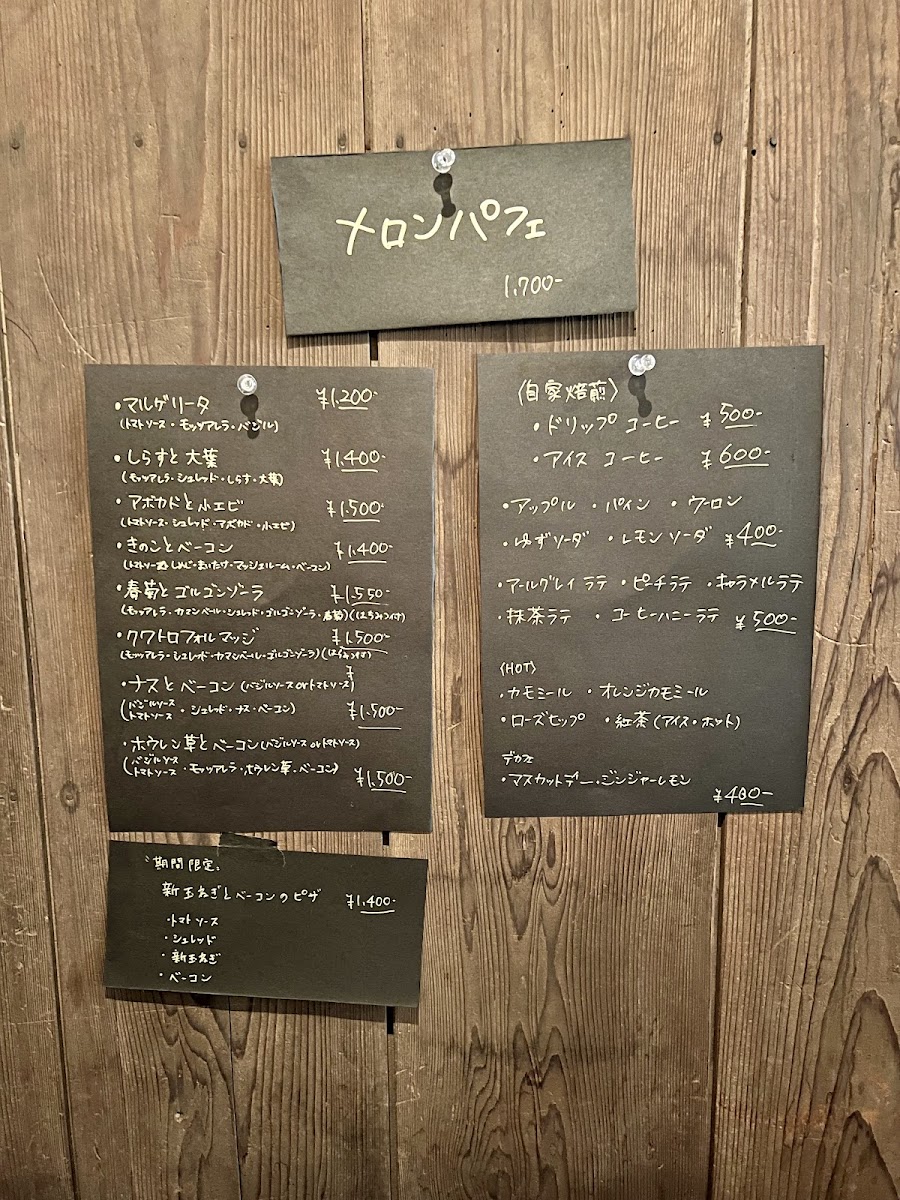 メロンパフェ
1,700-
・マルゲリータ ¥1,200-
(トマトソース・モッツアレラ・バジル)
・しらすと大葉 ¥1,400-
(モッツアレラ・シュレッド・しらす・大葉)
・アボカドと小エビ ¥1,500-
(トマトソース・シュレッド・アボカド・小エビ)
・きのことベーコン ¥1,400-
(トマトソース・しめじ・まいたけ・マッシュルーム・ベーコン)
・春菊とゴルゴンゾーラ ¥1,550-
(モッツアレラ・カマンベール・シュレッド・ゴルゴンゾーラ・春菊)(はちみつ付)
・クワトロフォルマッジ ¥1,500-
(モッツアレラ・シュレッド・カマンベール・ゴルゴンゾーラ)(はちみつ付)
・ナスとベーコン(バジルソースorトマトソース)
(バジルソース
トマトソース・シュレッド・ナス・ベーコン) ¥1,500-
・ホウレン草とベーコン(バジルソースorトマトソース)
(バジルソース
トマトソース・モッツアレラ・ホウレン草・ベーコン) ¥1,500-
期間限定
新玉ねぎとベーコンのピザ ¥1,400-
・トマトソース
・シュレッド
・新玉ねぎ
・ベーコン
〈自家焙煎〉
・ドリップコーヒー ¥500-
・アイスコーヒー ¥600-
・アップル ・パイン ・ウーロン
・ゆずソーダ ・レモンソーダ ¥400-
・アールグレイラテ ・ピーチラテ ・キャラメルラテ
・抹茶ラテ ・コーヒーハニーラテ ¥500-
〈HOT〉
・カモミール ・オレンジカモミール
・ローズヒップ ・紅茶(アイス・ホット)
デカフェ
・マスカットデー・ジンジャーレモン
¥400-